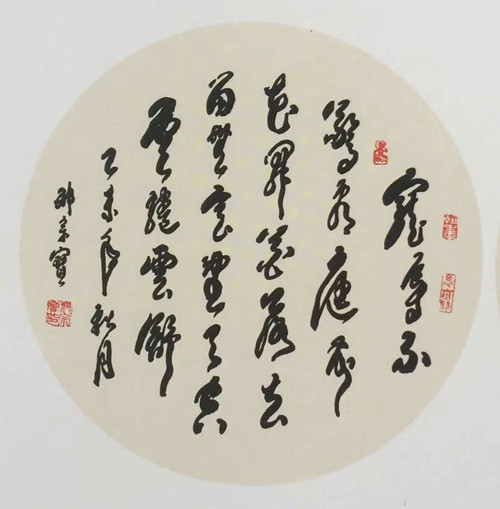 寵辱不
驚看庭前
花開花落去
留無意望天空
雲捲雲舒
乙未年秋月
邵宗寶